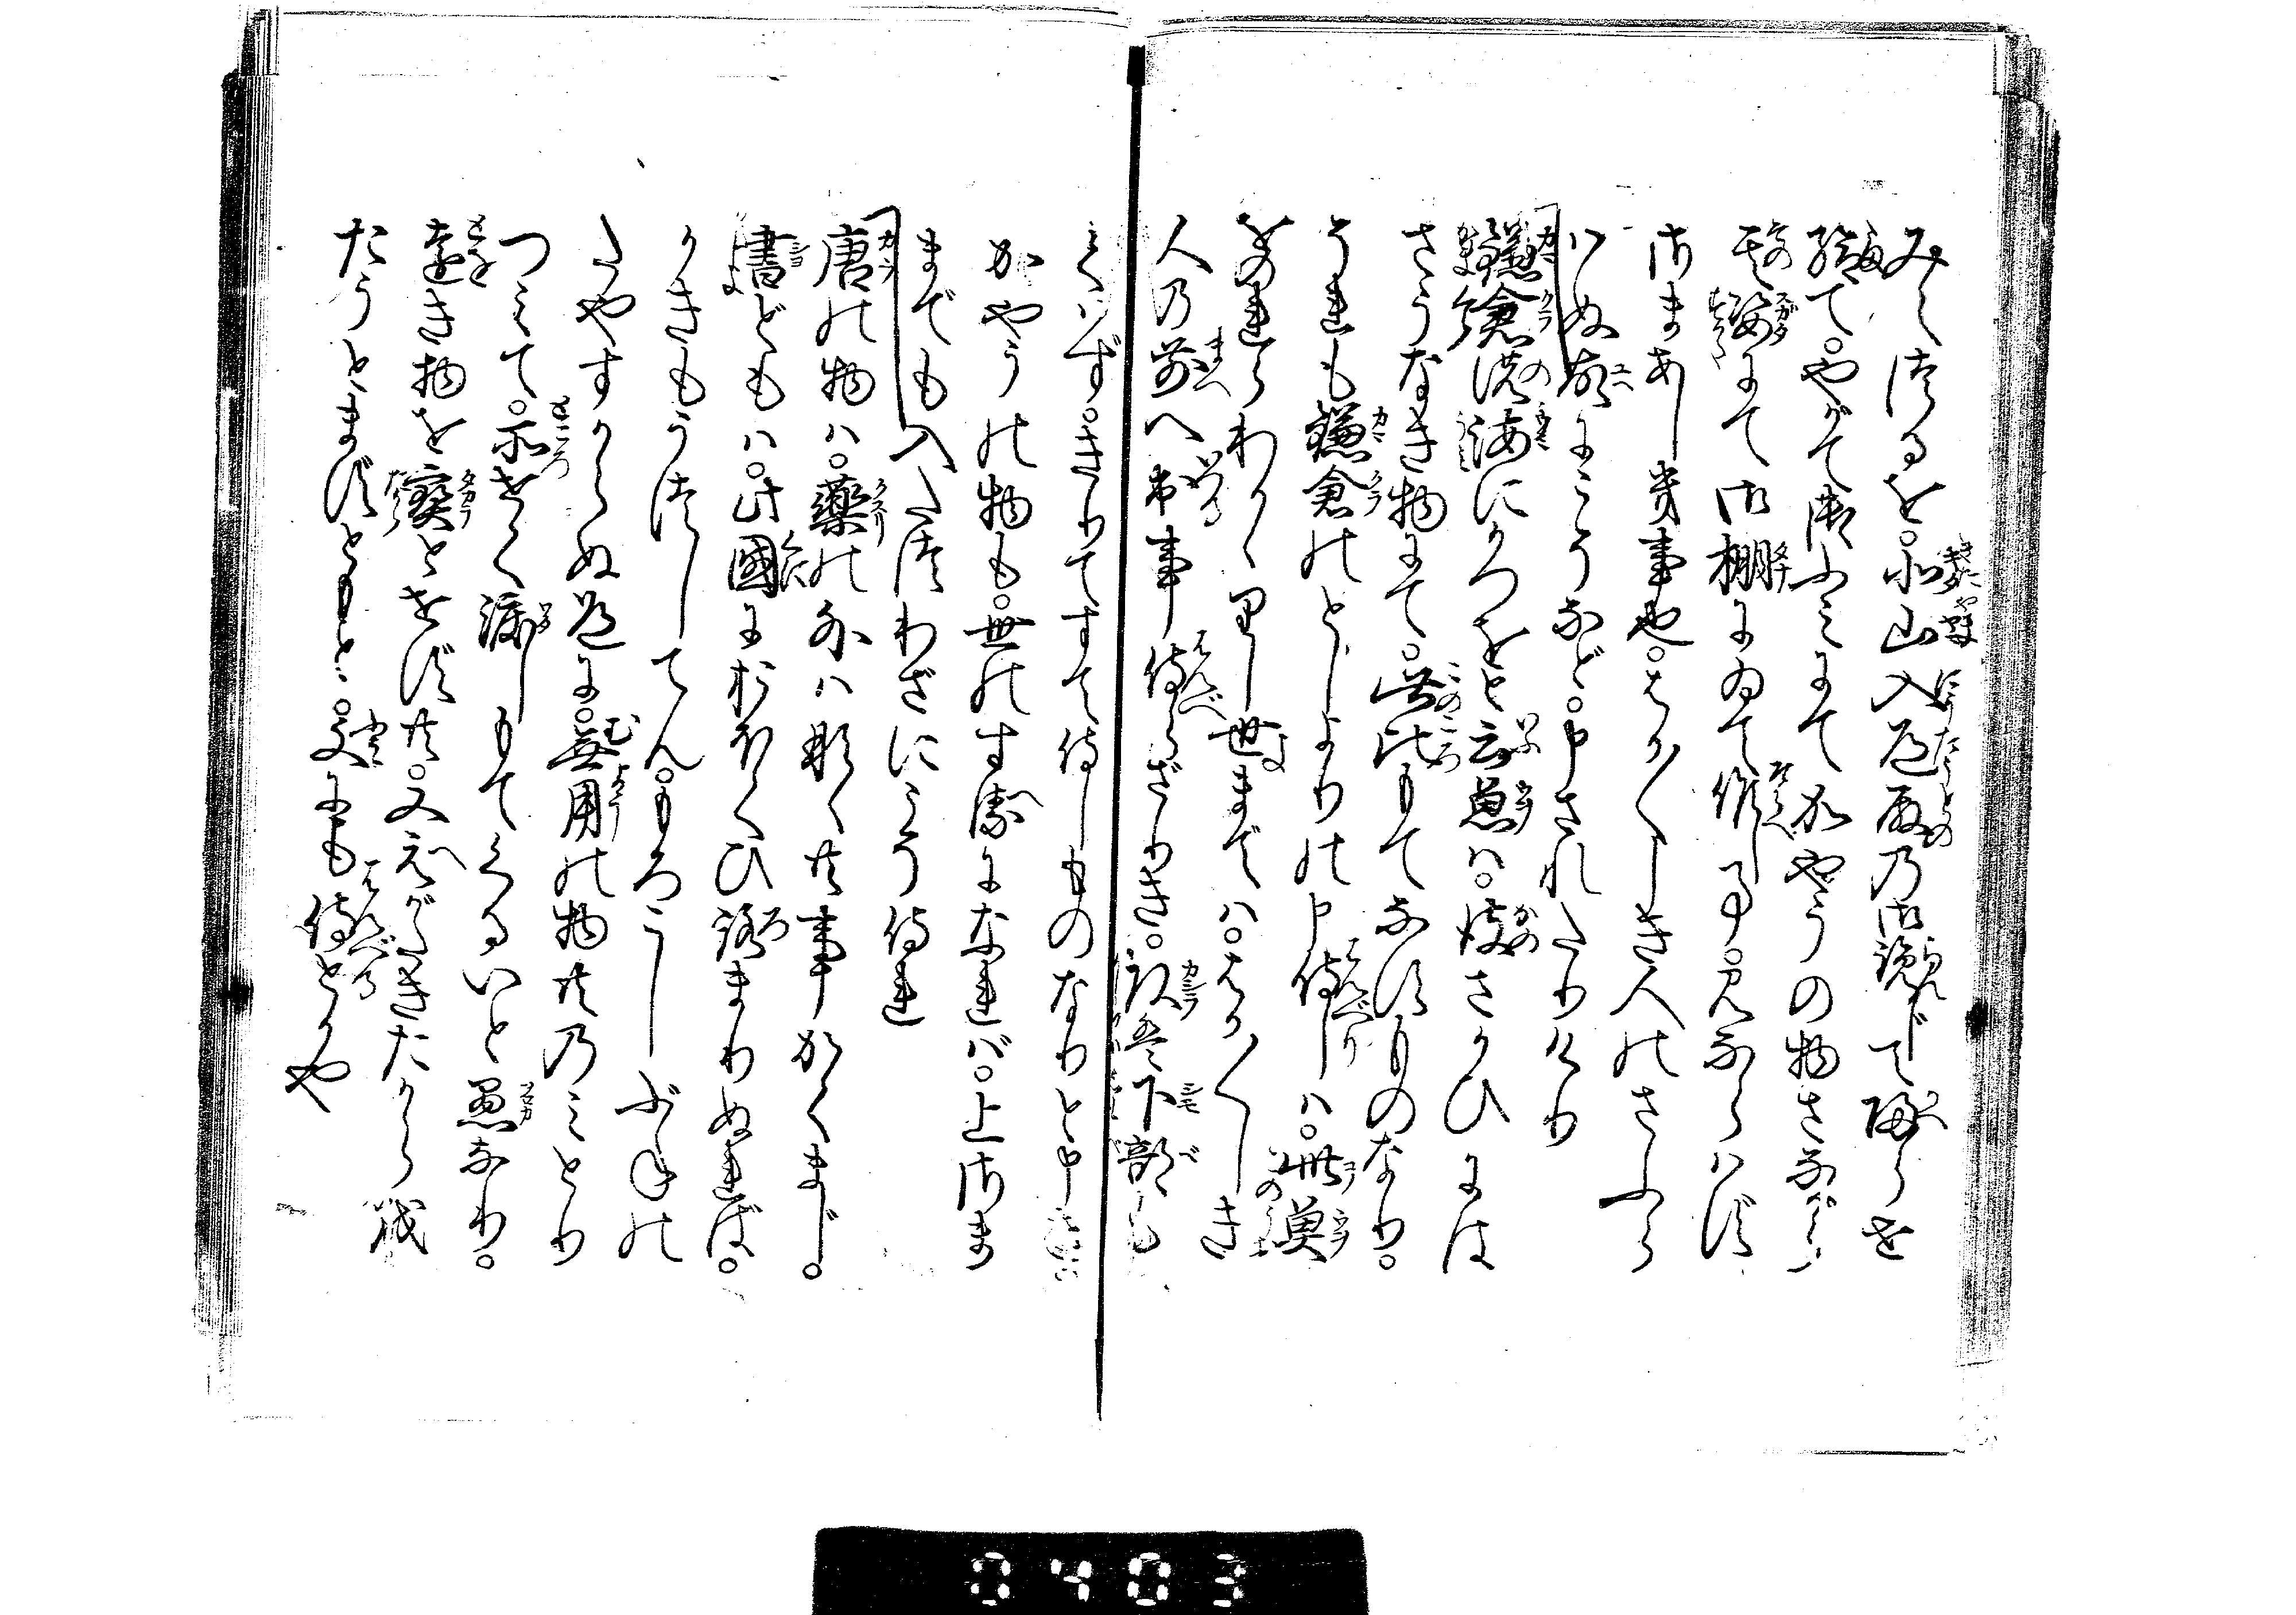 みえつるを。北山入道殿の御覧じて帰らせ
給て。やがて御ふみにて。かやうの物さながら
其姿にて御棚にゐて候し事。見ならはず
さまあし貴事也。はか〴〵しき人のさふら
はぬ故にこそなど。申されたりけり
鎌倉の海にかつをと云魚は。彼さかひには
さうなき物にて。此比もてなすものなり。
それも鎌倉のとしよりの申侍しは。此魚
をのれらわかゝりし世までは。はか〴〵しき
人の前へ出事侍らざりき。頭は下部も
くはず。きりてすて侍しものなりと申き
かやうの物も。世のすゑになれば。上さま
までも入たつわざにこそ侍れ
唐の物は。薬の外はなくとも事かくまじ。
書どもは。此国におほくひろまりぬれば。
かきもうつしてん。もろこしぶねの
たやすからぬ道に。無用の物どものみとり
つみて。所せく渡しもてくるいと愚なり。
遠き物を宝とせずとも。又えがたきたからを
たうとまずとも。文にも侍とかや
0403